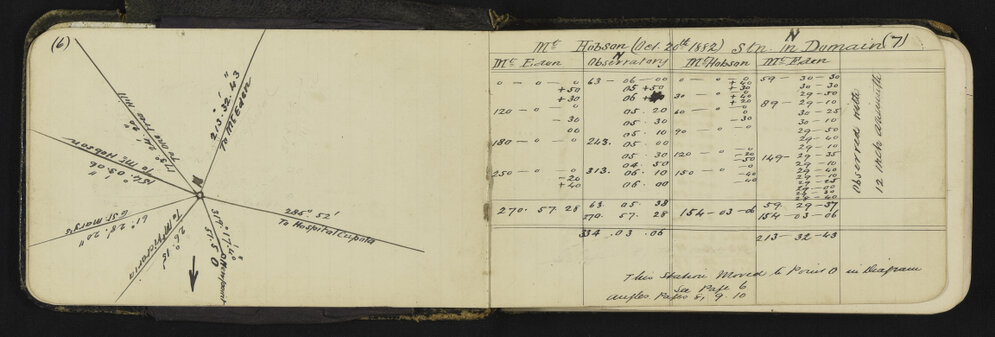 (6)
213°. 32'. 43"
To Mt Eden
173° 24' 26"
To One Tree Hill
154°. 03'. 06"
To Mt Hobson
N
61° 28' 20"
To St Marys
26° 15'
To Mt Victoria
319°. 17'. 40"
285° 52'
To Hospital Cupola
(7)
Mt Hobson (Oct. 20th 1882) Stn. N in Domain
Mt Eden Observatory N Mt Hobson Mt Eden
0 — 0 — 0 63 — 06 — 00 0 — 0 — 0 59 — 30 — 30
+50 05 +50 +40 30 — 30
+30 06 +30 29 — 50
30 — 0 +40
+20 89 — 29 — 10
120 — 0 05 . 20 60 — 0 30 — 25
— 30 05 . 30 — 30 30 — 10
00 05 . 10 90 — 0 29 — 50
29 — 40
180 — 0 — 0 243. 05 . 00 29 — 10
05 . 30 120 — 0 — 20 149 — 29 — 35
04 . 50 — 50 29 — 10
250 — 0 — 0 313. 06 . 10 150 — 0 — 40 29 — 40
— 20 29 — 10
+40 06 . 00 — 40 29 — 25
29 — 00
270. 57. 28 63. 05 . 38 154 — 03 — 06 59. 29 — 37
270. 57. 28 154 — 03 — 06
334 . 03 . 06 213 — 32 — 43
Observed with
12 inch azimuth
This Station Moved to Point O in Diagram
See Page 6
Angles Pages 8, 9, 10